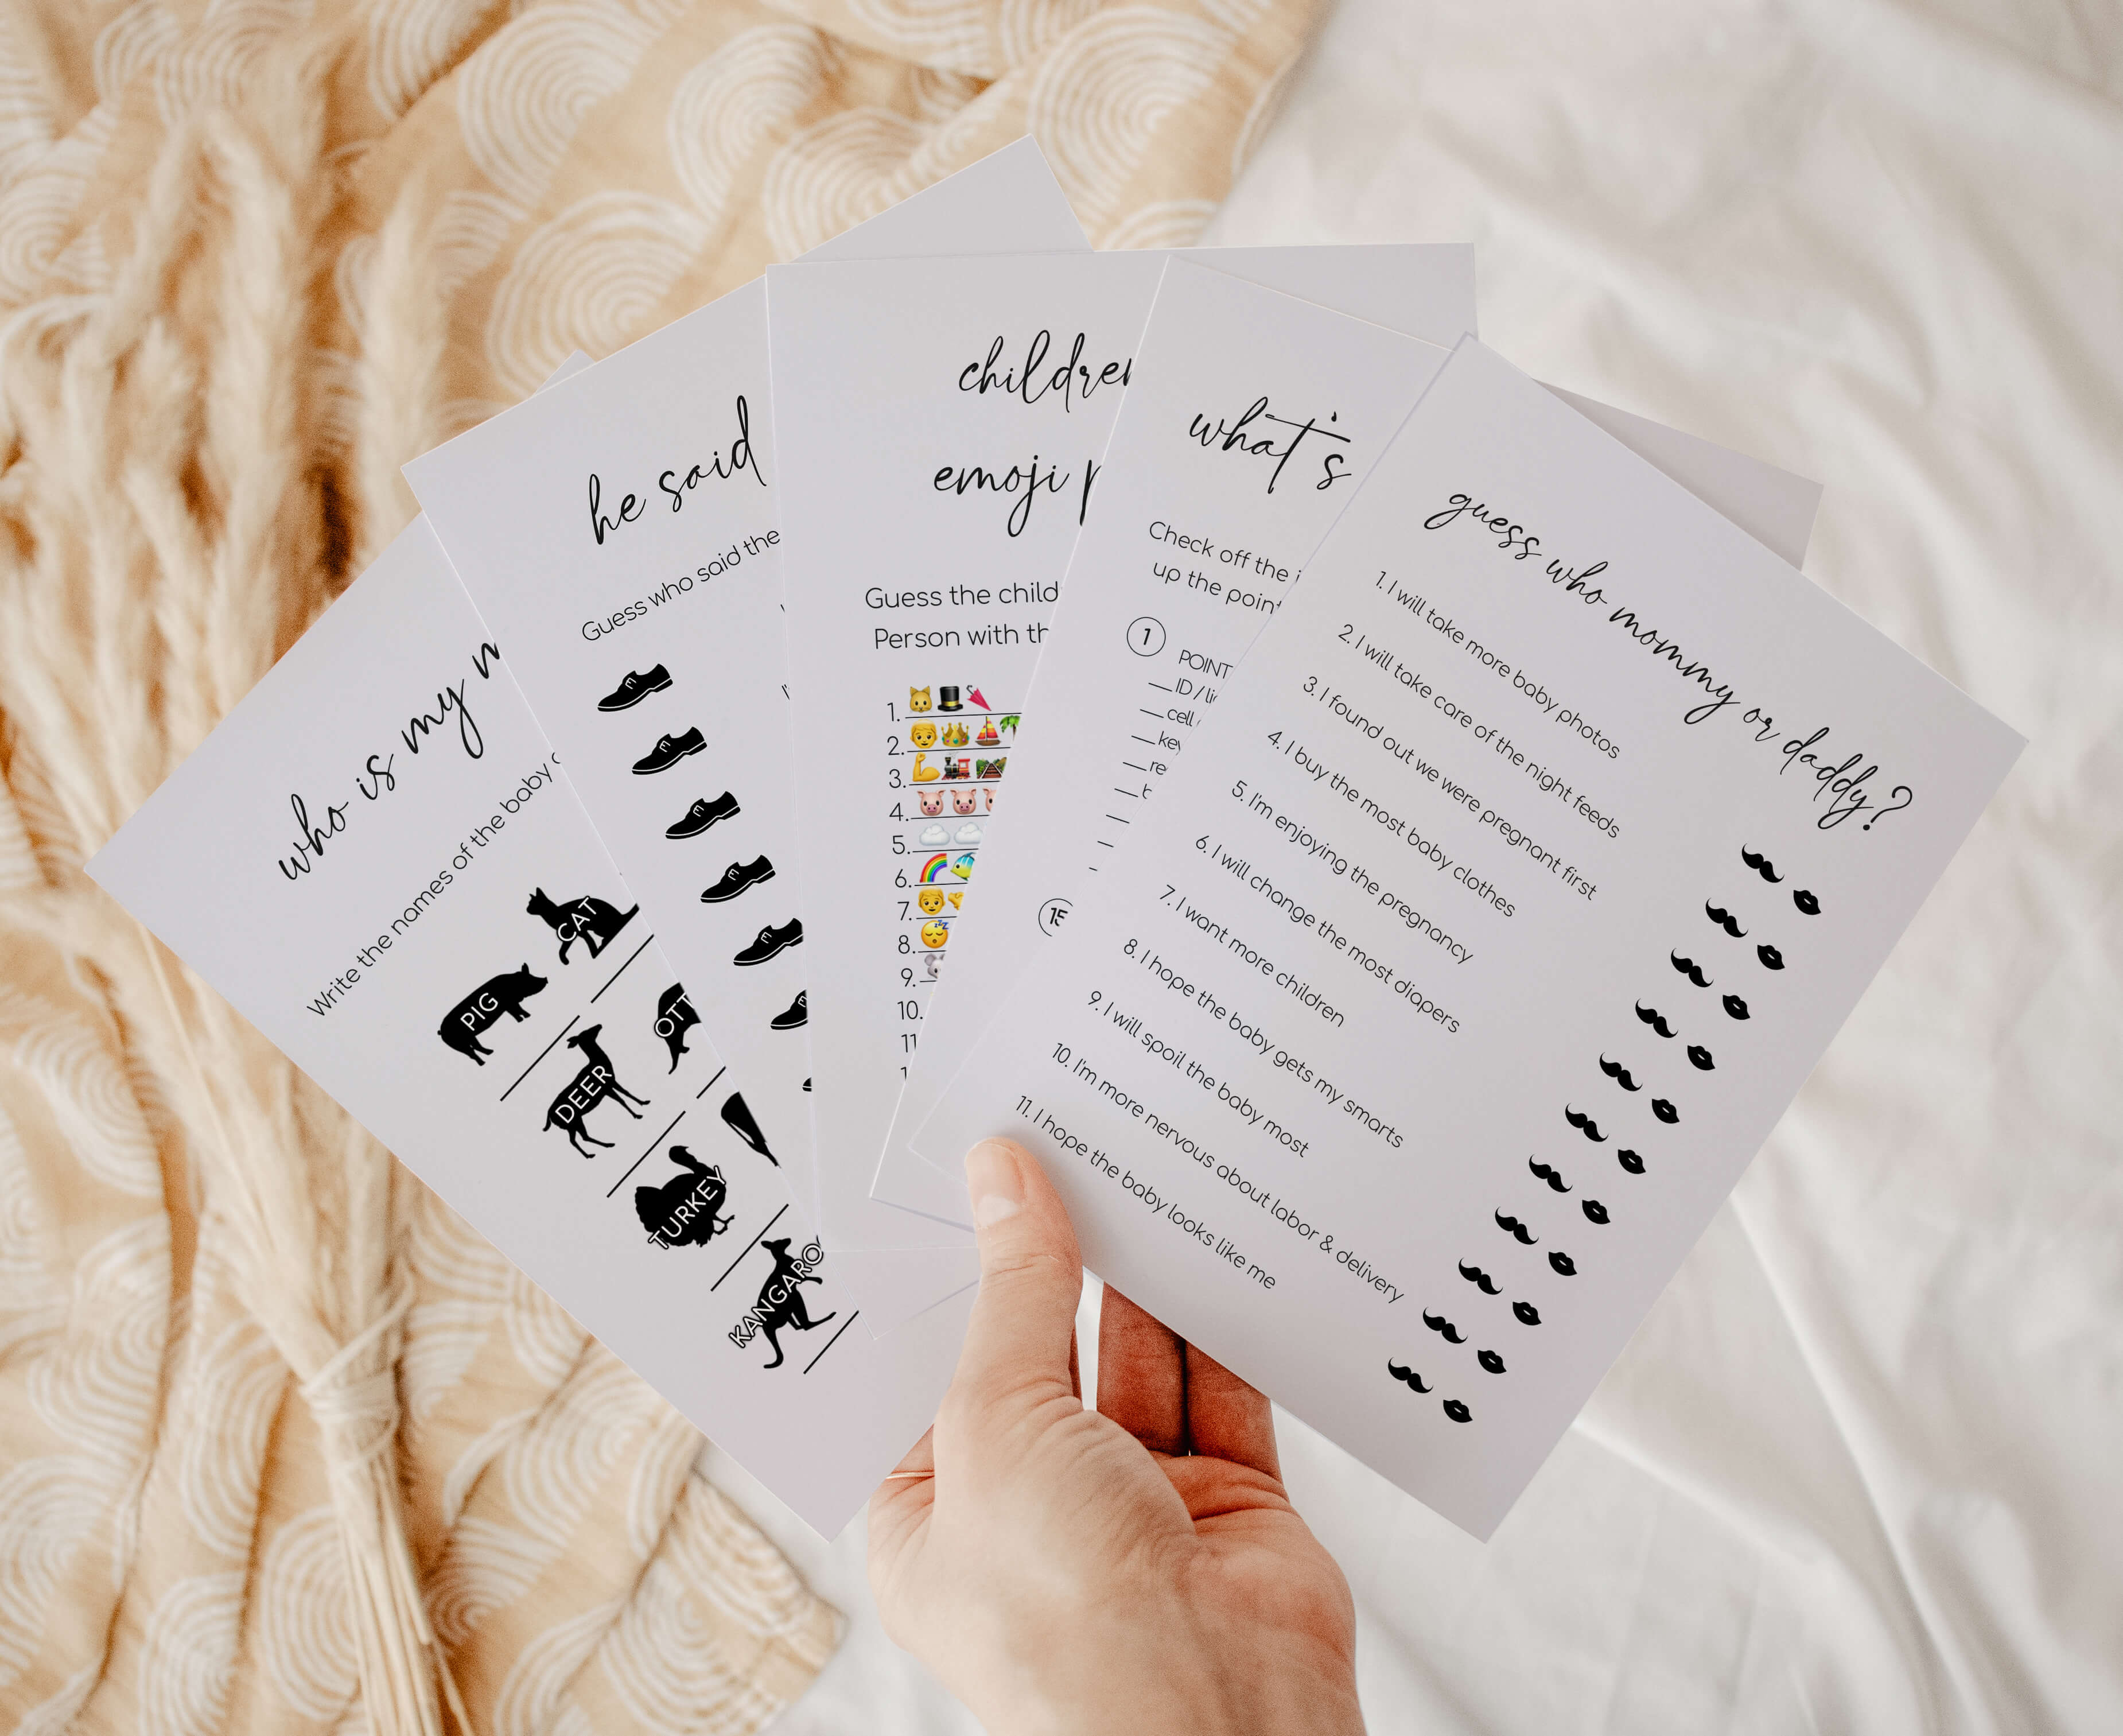 who is my
Write the names of the baby
CAT
PIG
OTT
DEER
TURKEY
KANGAROO
he said
Guess who said the
children
emoji p
Guess the child
Person with th
1.
2.
3.
4.
5.
6.
7.
8.
9.
10.
11
1
what's
Check off the i
up the point
1
POINT
ID / li
cell
key
re
15
guess who mommy or daddy?
1. I will take more baby photos
2. I will take care of the night feeds
3. I found out we were pregnant first
4. I buy the most baby clothes
5. I'm enjoying the pregnancy
6. I will change the most diapers
7. I want more children
8. I hope the baby gets my smarts
9. I will spoil the baby most
10. I'm more nervous about labor & delivery
11. I hope the baby looks like me